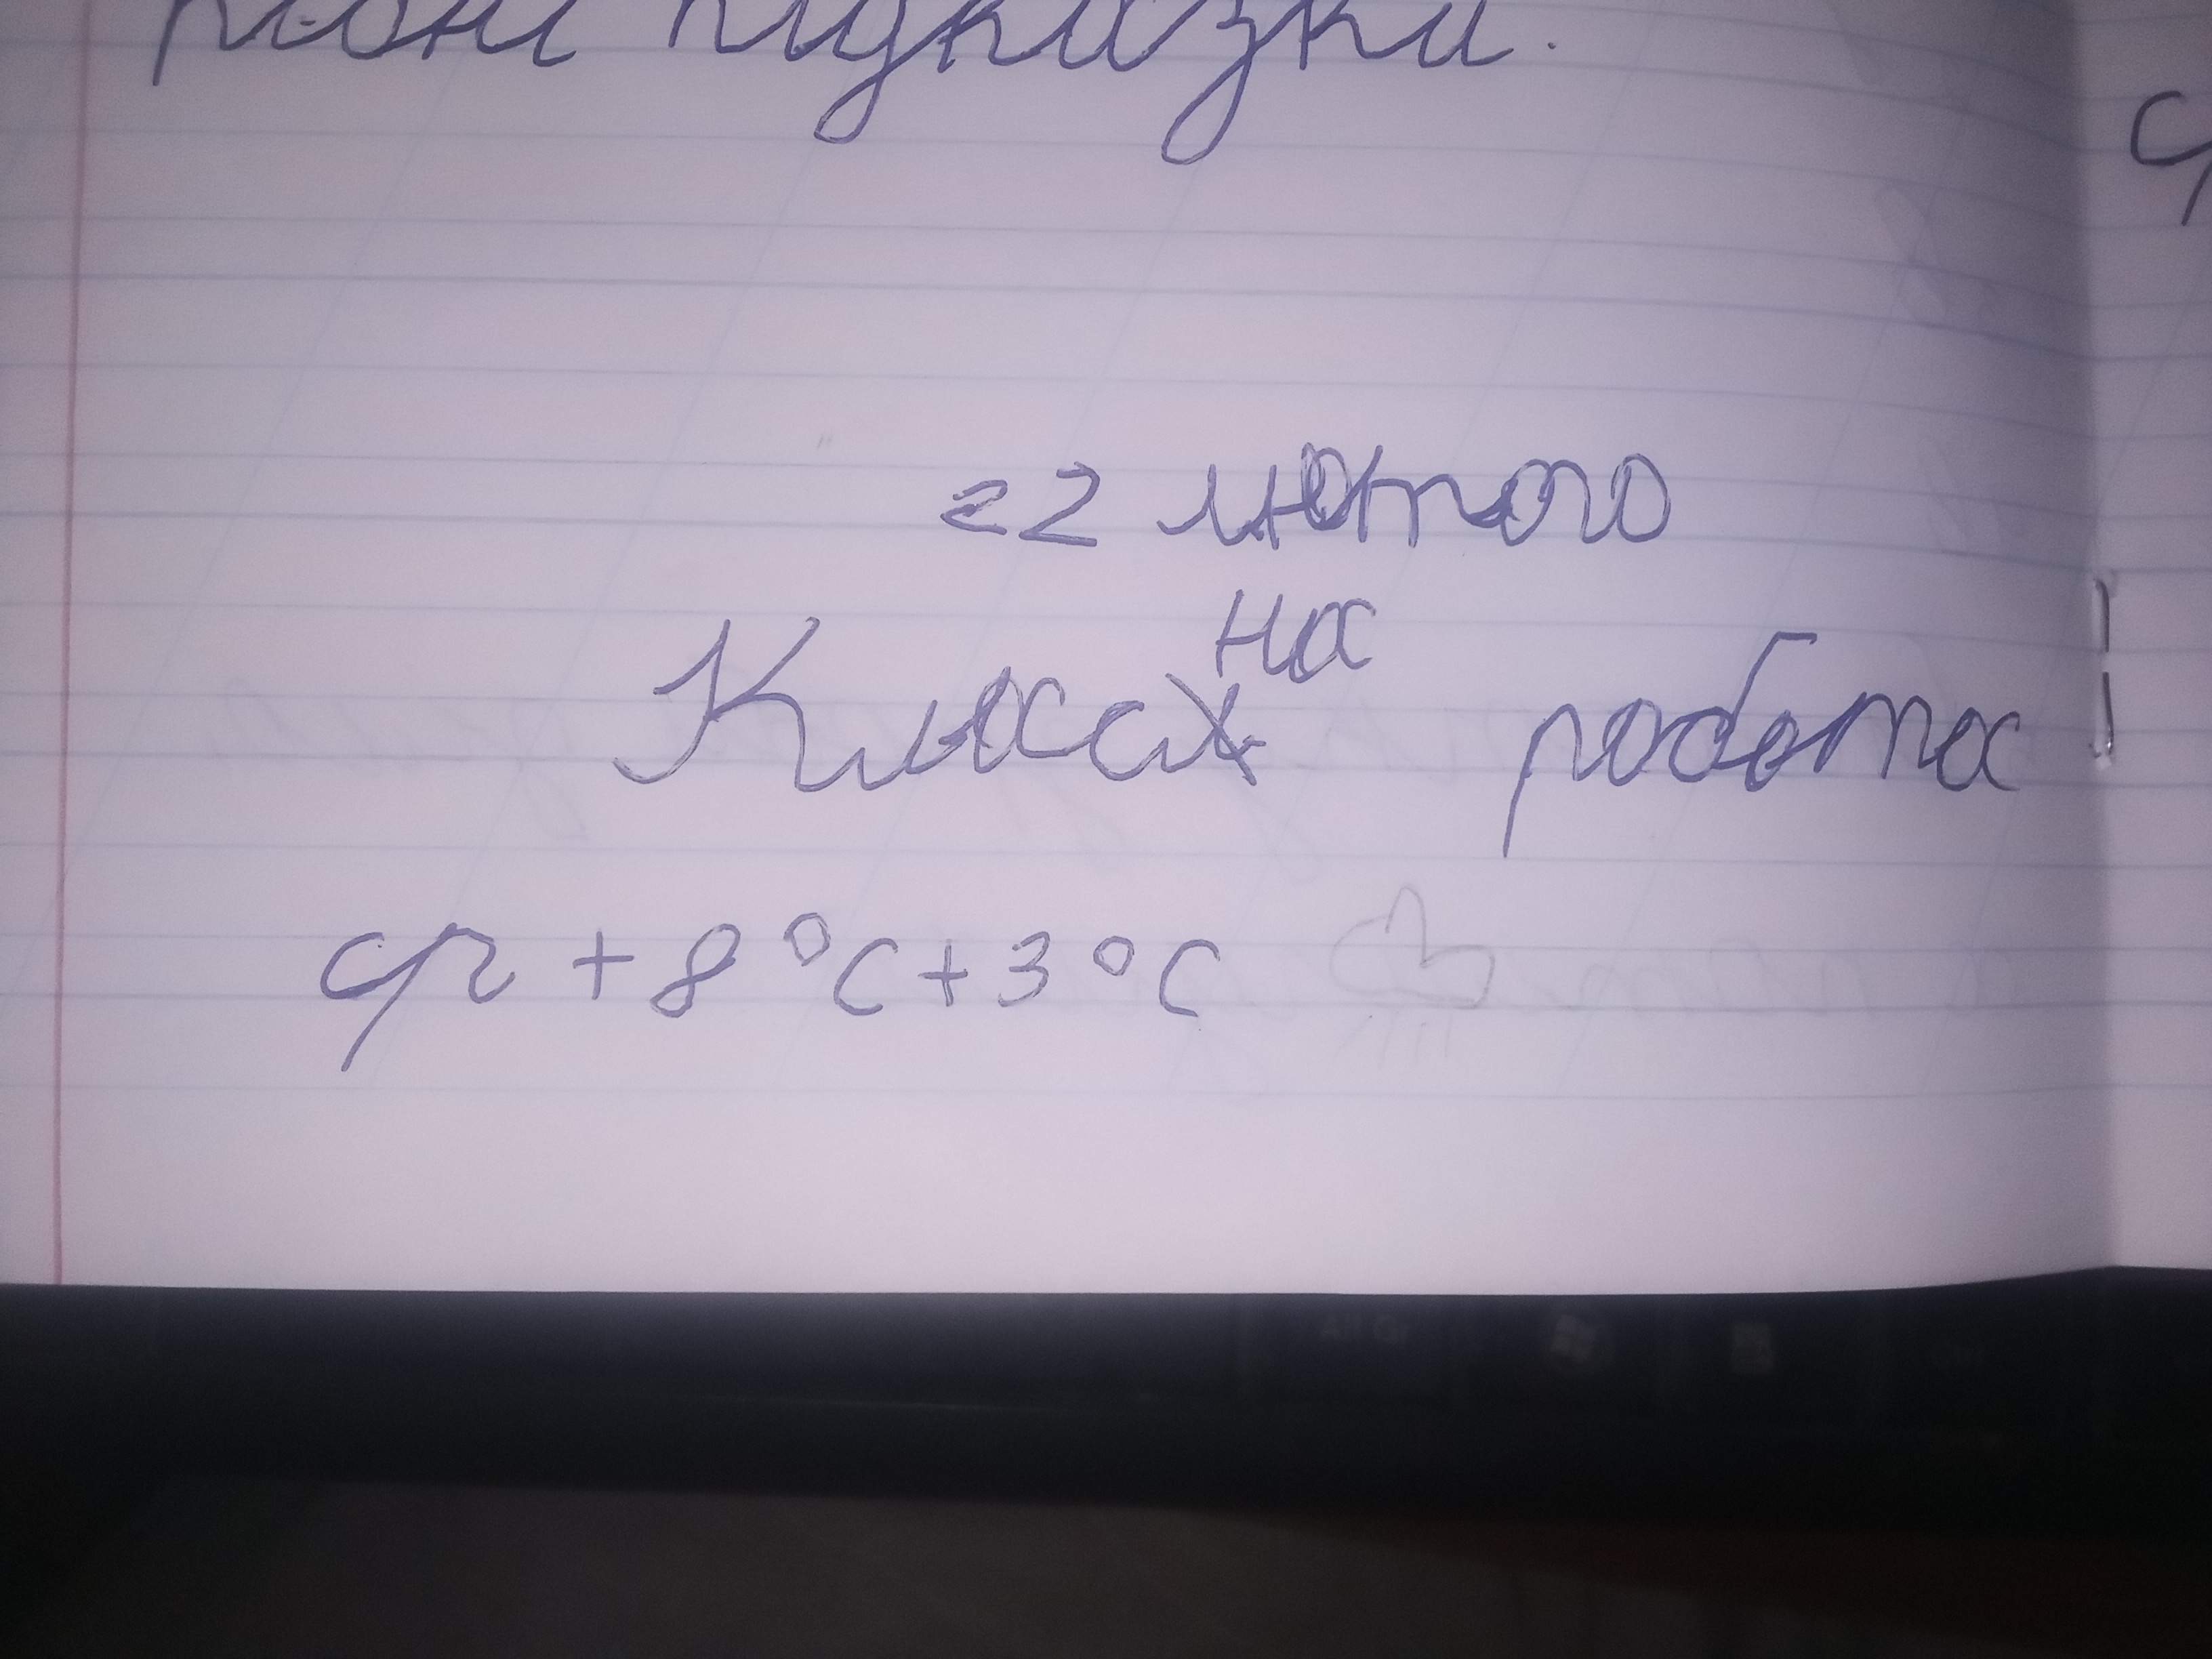 підказки.
22 лютого
Класна робота
ср +8°С +3°С